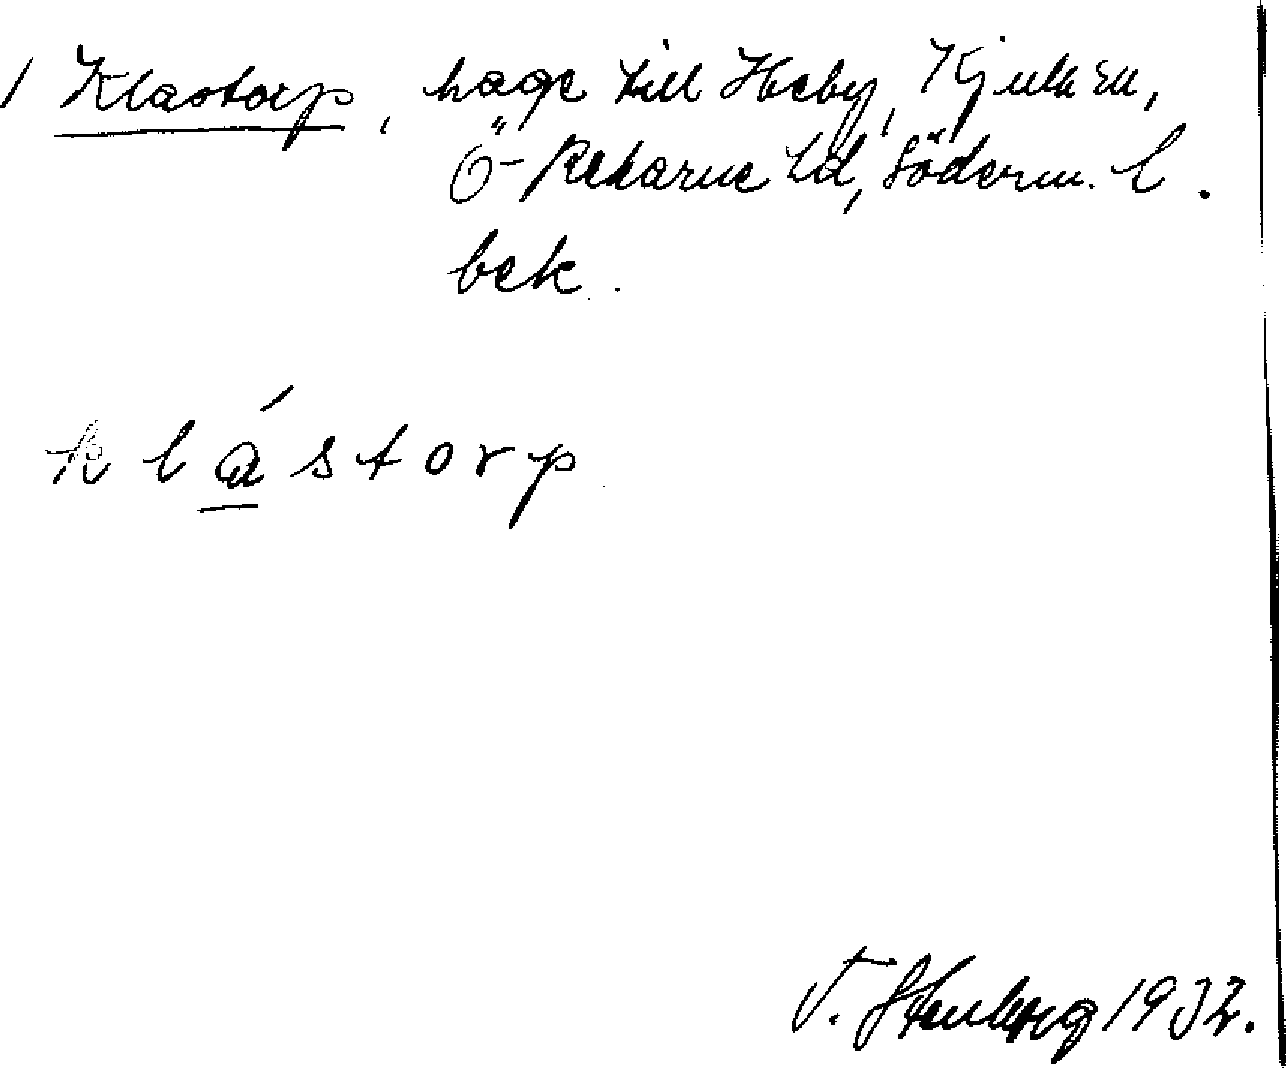 / Klastorp, hage till Heby, Kjula sn,
Ö-Rekarne hd, Söderm. l.
bek.
klástorp
T. Stenberg 1932.